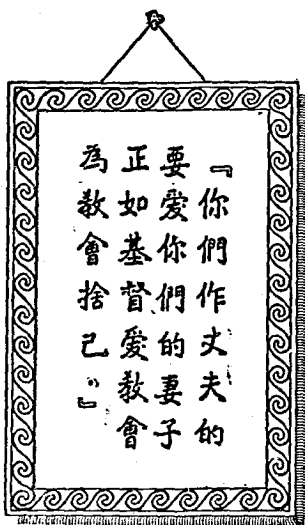 『你們作丈夫的
要愛你們的妻子
正如基督愛教會
為教會捨己。』